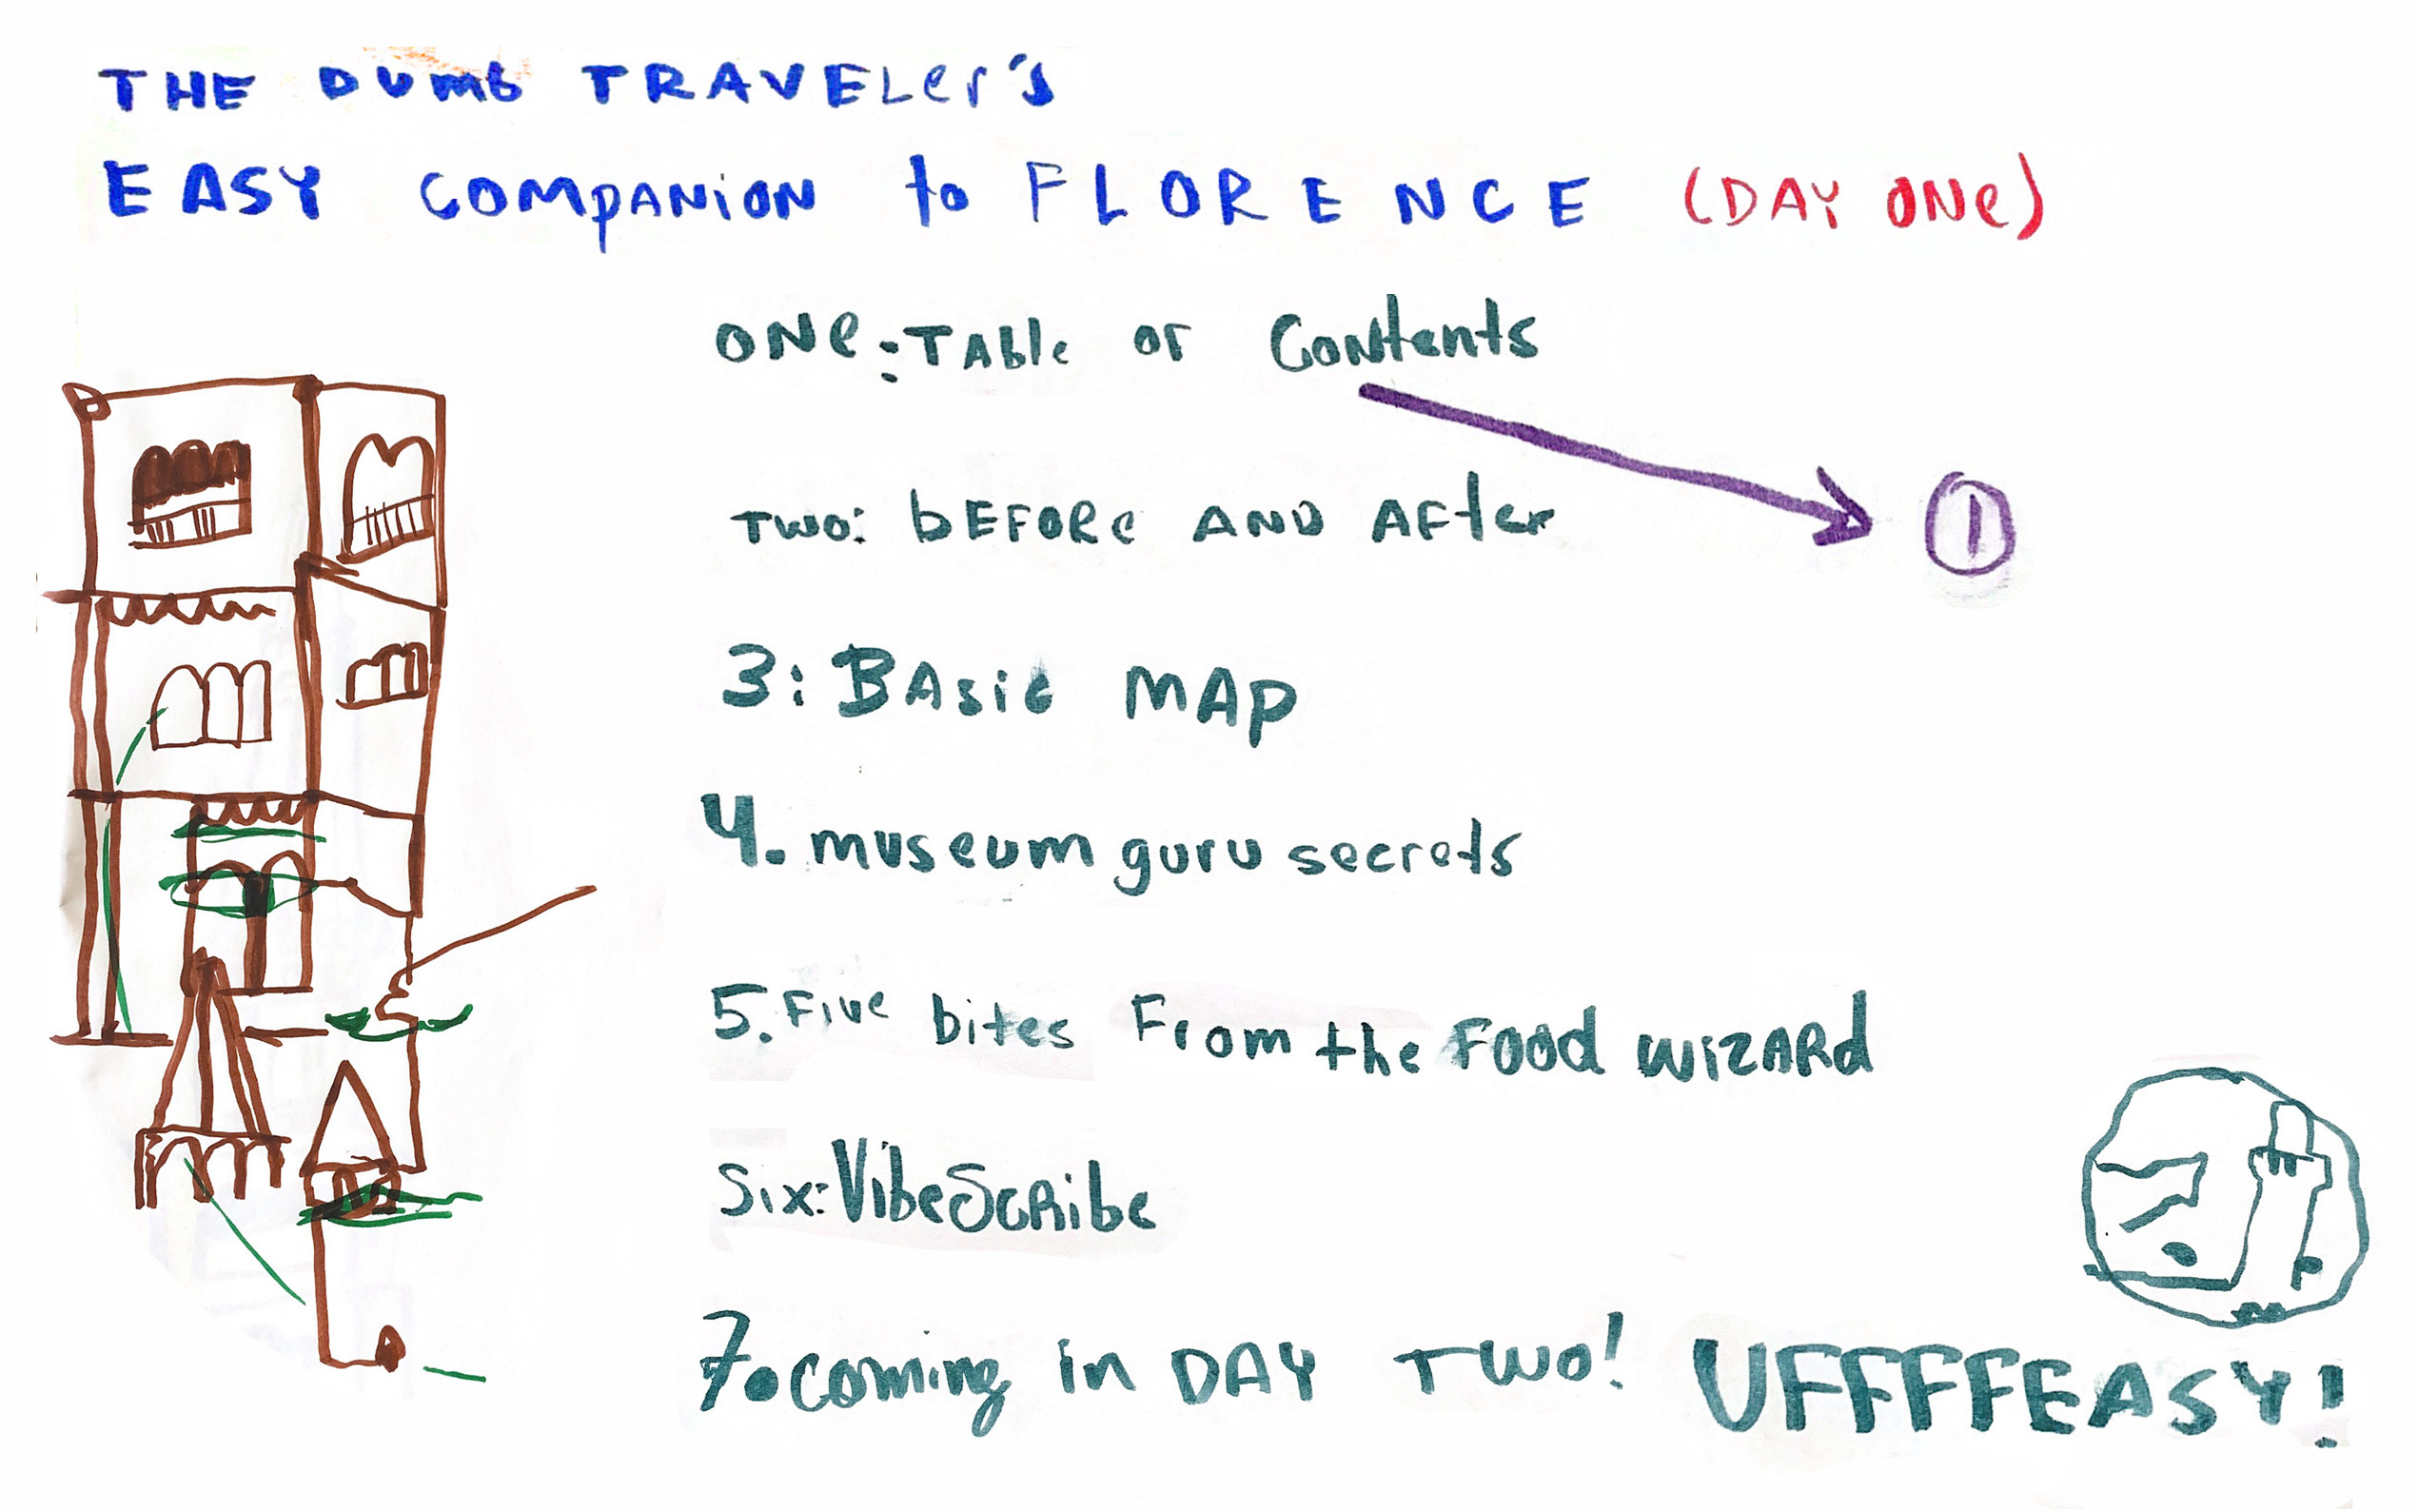 THE DUMB TRAVELer's
EASY COMPANION to FLORENCE (DAY ONe)
ONe: TAble OF Contents
TWO: bEFORe AND AFter
1
3: BAsic MAP
4. museum guru secrets
5. Five bites From the Food WIZARd
Six: VibeScRibe
7. coming in DAY TWO! UFFFFEASY!